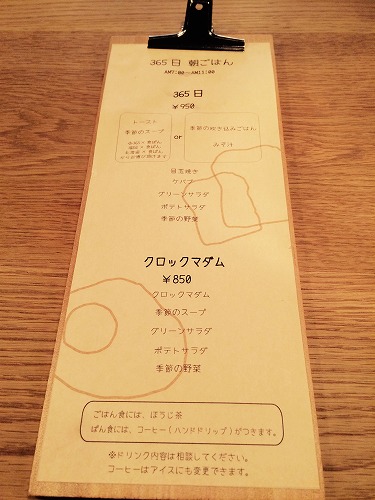 365日 朝ごはん
AM7:00―AM11:00
365日
￥950
トースト
季節のスープ
or
季節の炊き込みごはん
みそ汁
目玉焼き
ケバブ
グリーンサラダ
ポテトサラダ
季節の野菜
クロックマダム
￥850
クロックマダム
季節のスープ
グリーンサラダ
ポテトサラダ
季節の野菜
ごはん食には、ほうじ茶
ぱん食には、コーヒー(ハンドドリップ)がつきます。
※ドリンク内容は相談してください。
コーヒーはアイスにも変更できます。